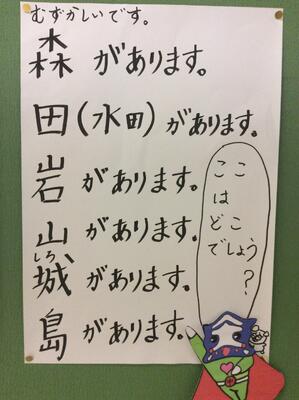 むずかしいです。
森があります。
田(水田)があります。
岩があります。
山があります。
しろ
城があります。
島があります。
ここ
は
どこ
でしょう
?